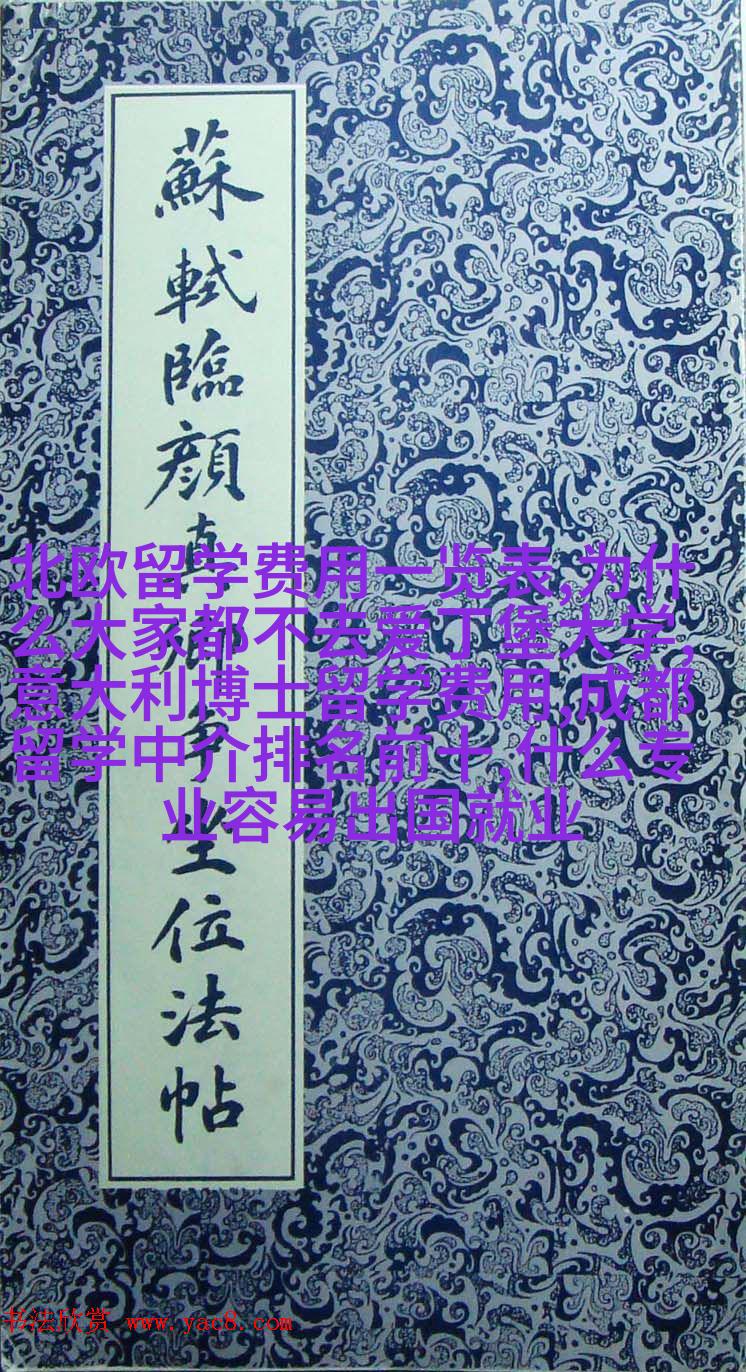 蘇軾臨顔真卿争坐位法帖
北欧留学费用一览表,为什
么大家都不去爱丁堡大学,
意大利博士留学费用,成都
留学中介排名前十,什么专
业容易出国就业
书法欣赏 www.yac8.com